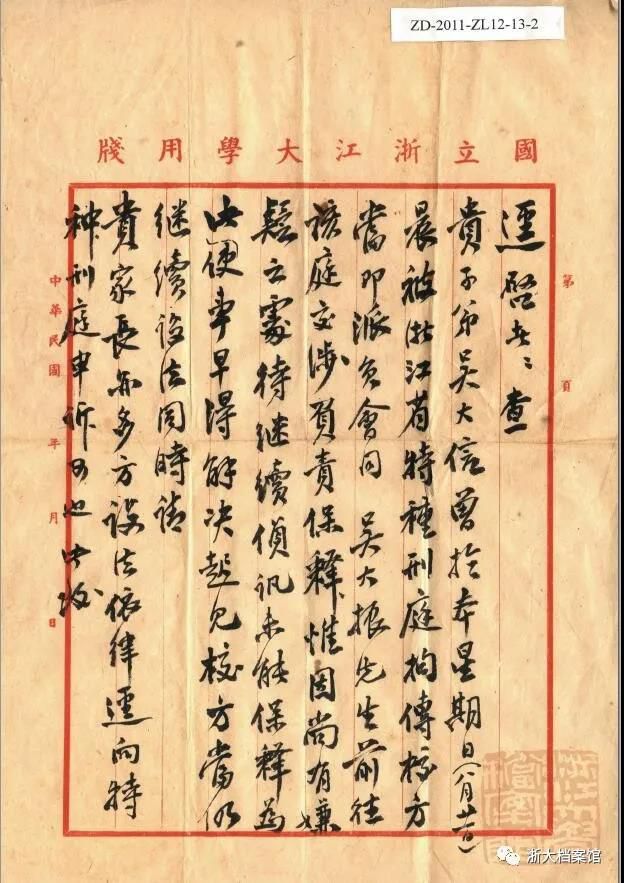 ZD-2011-ZL12-13-2
國立浙江大學用牋
第 頁
逕啓者:查
貴子弟吴大信曾於本星期日(八月廿二日)
晨被浙江省特種刑庭拘傳校方
當即派員會同 吴大振先生前往
該庭交涉負責保釋惟因尚有嫌
疑之處待继續偵訊未能保釋为
此使事早得解决起见校方當仍
继續设法同時請
貴家長亦多方設法依律逕向特
种刑庭申訴可也此致
中華民國 年 月 日
浙大档案馆